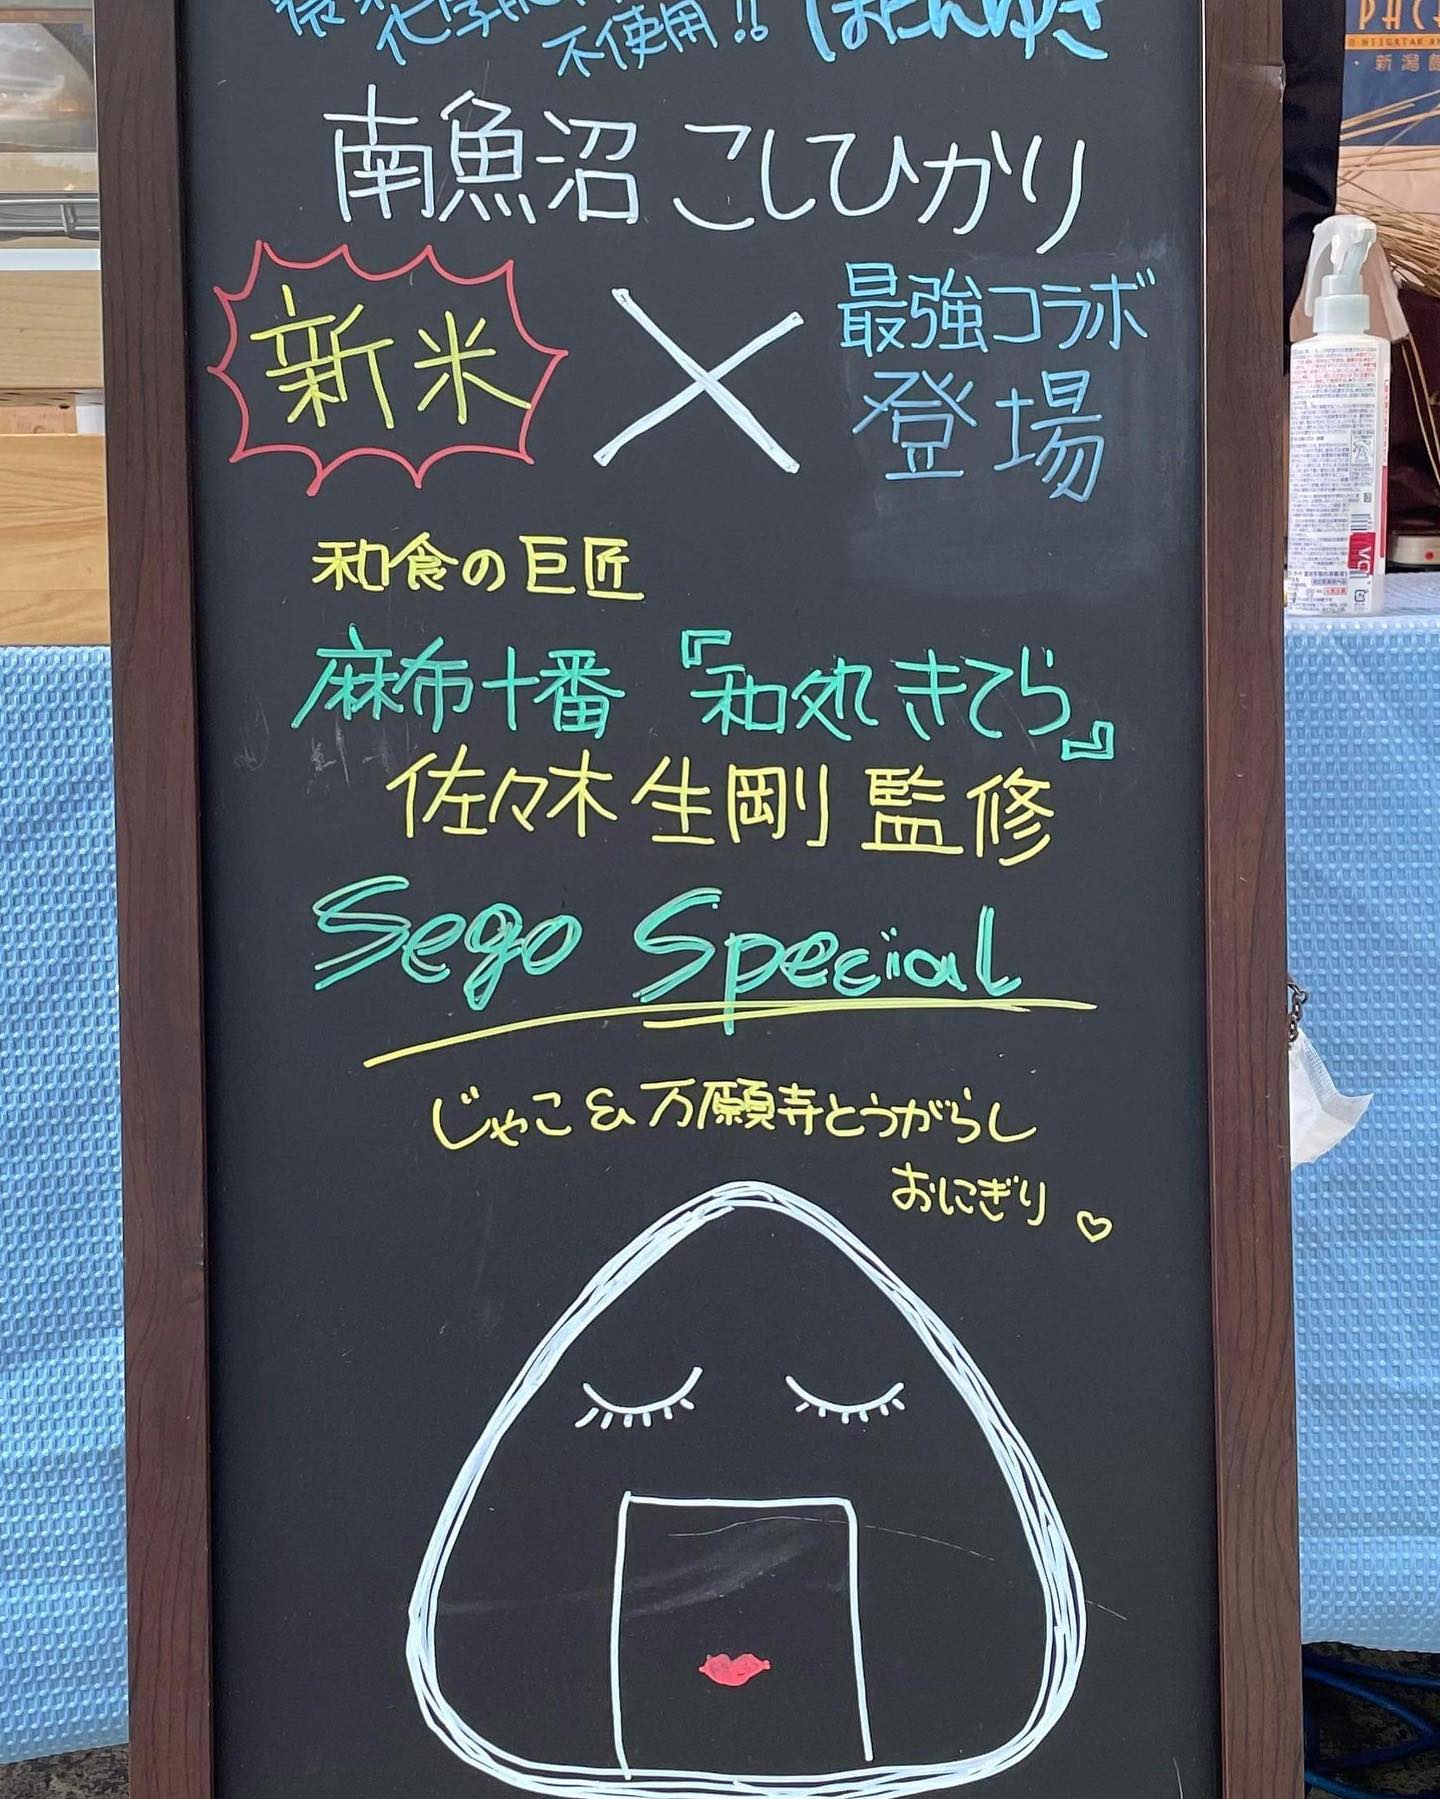 不使用!! ぼたんゆき
南魚沼 こしひかり
新米 × 最強コラボ
登場
和食の巨匠
麻布十番 『和処 きてら』
佐々木 生剛 監修
Sego Special
じゃこ & 万願寺とうがらし
おにぎり ♡
・新潟